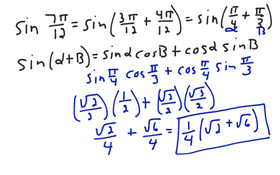 sin 7π/12 = sin(3π/12 + 4π/12) = sin(π/4 + π/3)
α β
sin(α+β) = sinα cosβ + cosα sinβ
sin π/4 cos π/3 + cos π/4 sin π/3
(√2/2)(1/2) + (√2/2)(√3/2)
√2/4 + √6/4 = 1/4(√2 + √6)